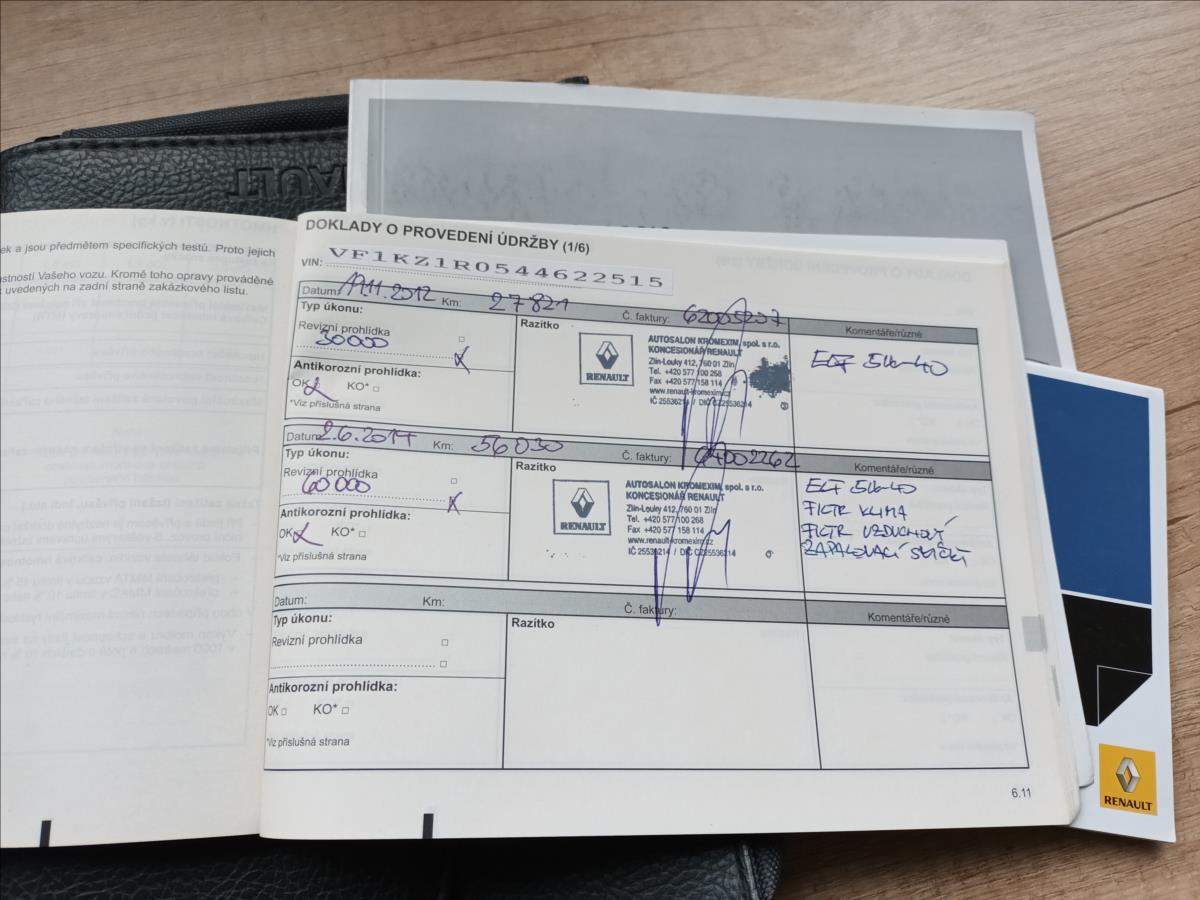 RENAULT
ek a jsou předmětem specifických testů. Proto jejich
astností Vašeho vozu. Kromě toho opravy prováděné
uvedených na zadní straně zakázkového listu.
DOKLADY O PROVEDENÍ ÚDRŽBY (1/6)
VIN: VF1KZ1R0544622515
Datum: 19.11.2012 Km: 27821 Č. faktury: Komentáře/různé
Typ úkonu: Razítko
Revizní prohlídka □
30000 X
Antikorozní prohlídka:
OK KO* □
*Viz příslušná strana
RENAULT
AUTOSALON KROMEXIM, spol. s r.o.
KONCESIONÁŘ RENAULT
Zlín-Louky 412, 760 01 Zlín
Tel. +420 577 100 268
Fax +420 577 158 114
www.renault-kromexim.cz
IČ 25536214 / DIČ CZ25536214
ELF 5W-40
Datum: 2.6.2014 Km: 56030 Č. faktury: 64002262 Komentáře/různé
Typ úkonu: Razítko
Revizní prohlídka □
60000 X
Antikorozní prohlídka:
OK KO* □
*Viz příslušná strana
RENAULT
AUTOSALON KROMEXIM, spol. s r.o.
KONCESIONÁŘ RENAULT
Zlín-Louky 412, 760 01 Zlín
Tel. +420 577 100 268
Fax +420 577 158 114
www.renault-kromexim.cz
IČ 25536214 / DIČ CZ25536214
ELF 5W-40
FILTR KLIMA
FILTR VZDUCHOVÝ
ZAPALOVACÍ SVÍČKY
Datum: Km: Č. faktury: Komentáře/různé
Typ úkonu: Razítko
Revizní prohlídka □
□
Antikorozní prohlídka:
OK □ KO* □
*Viz příslušná strana
6.11
RENAULT